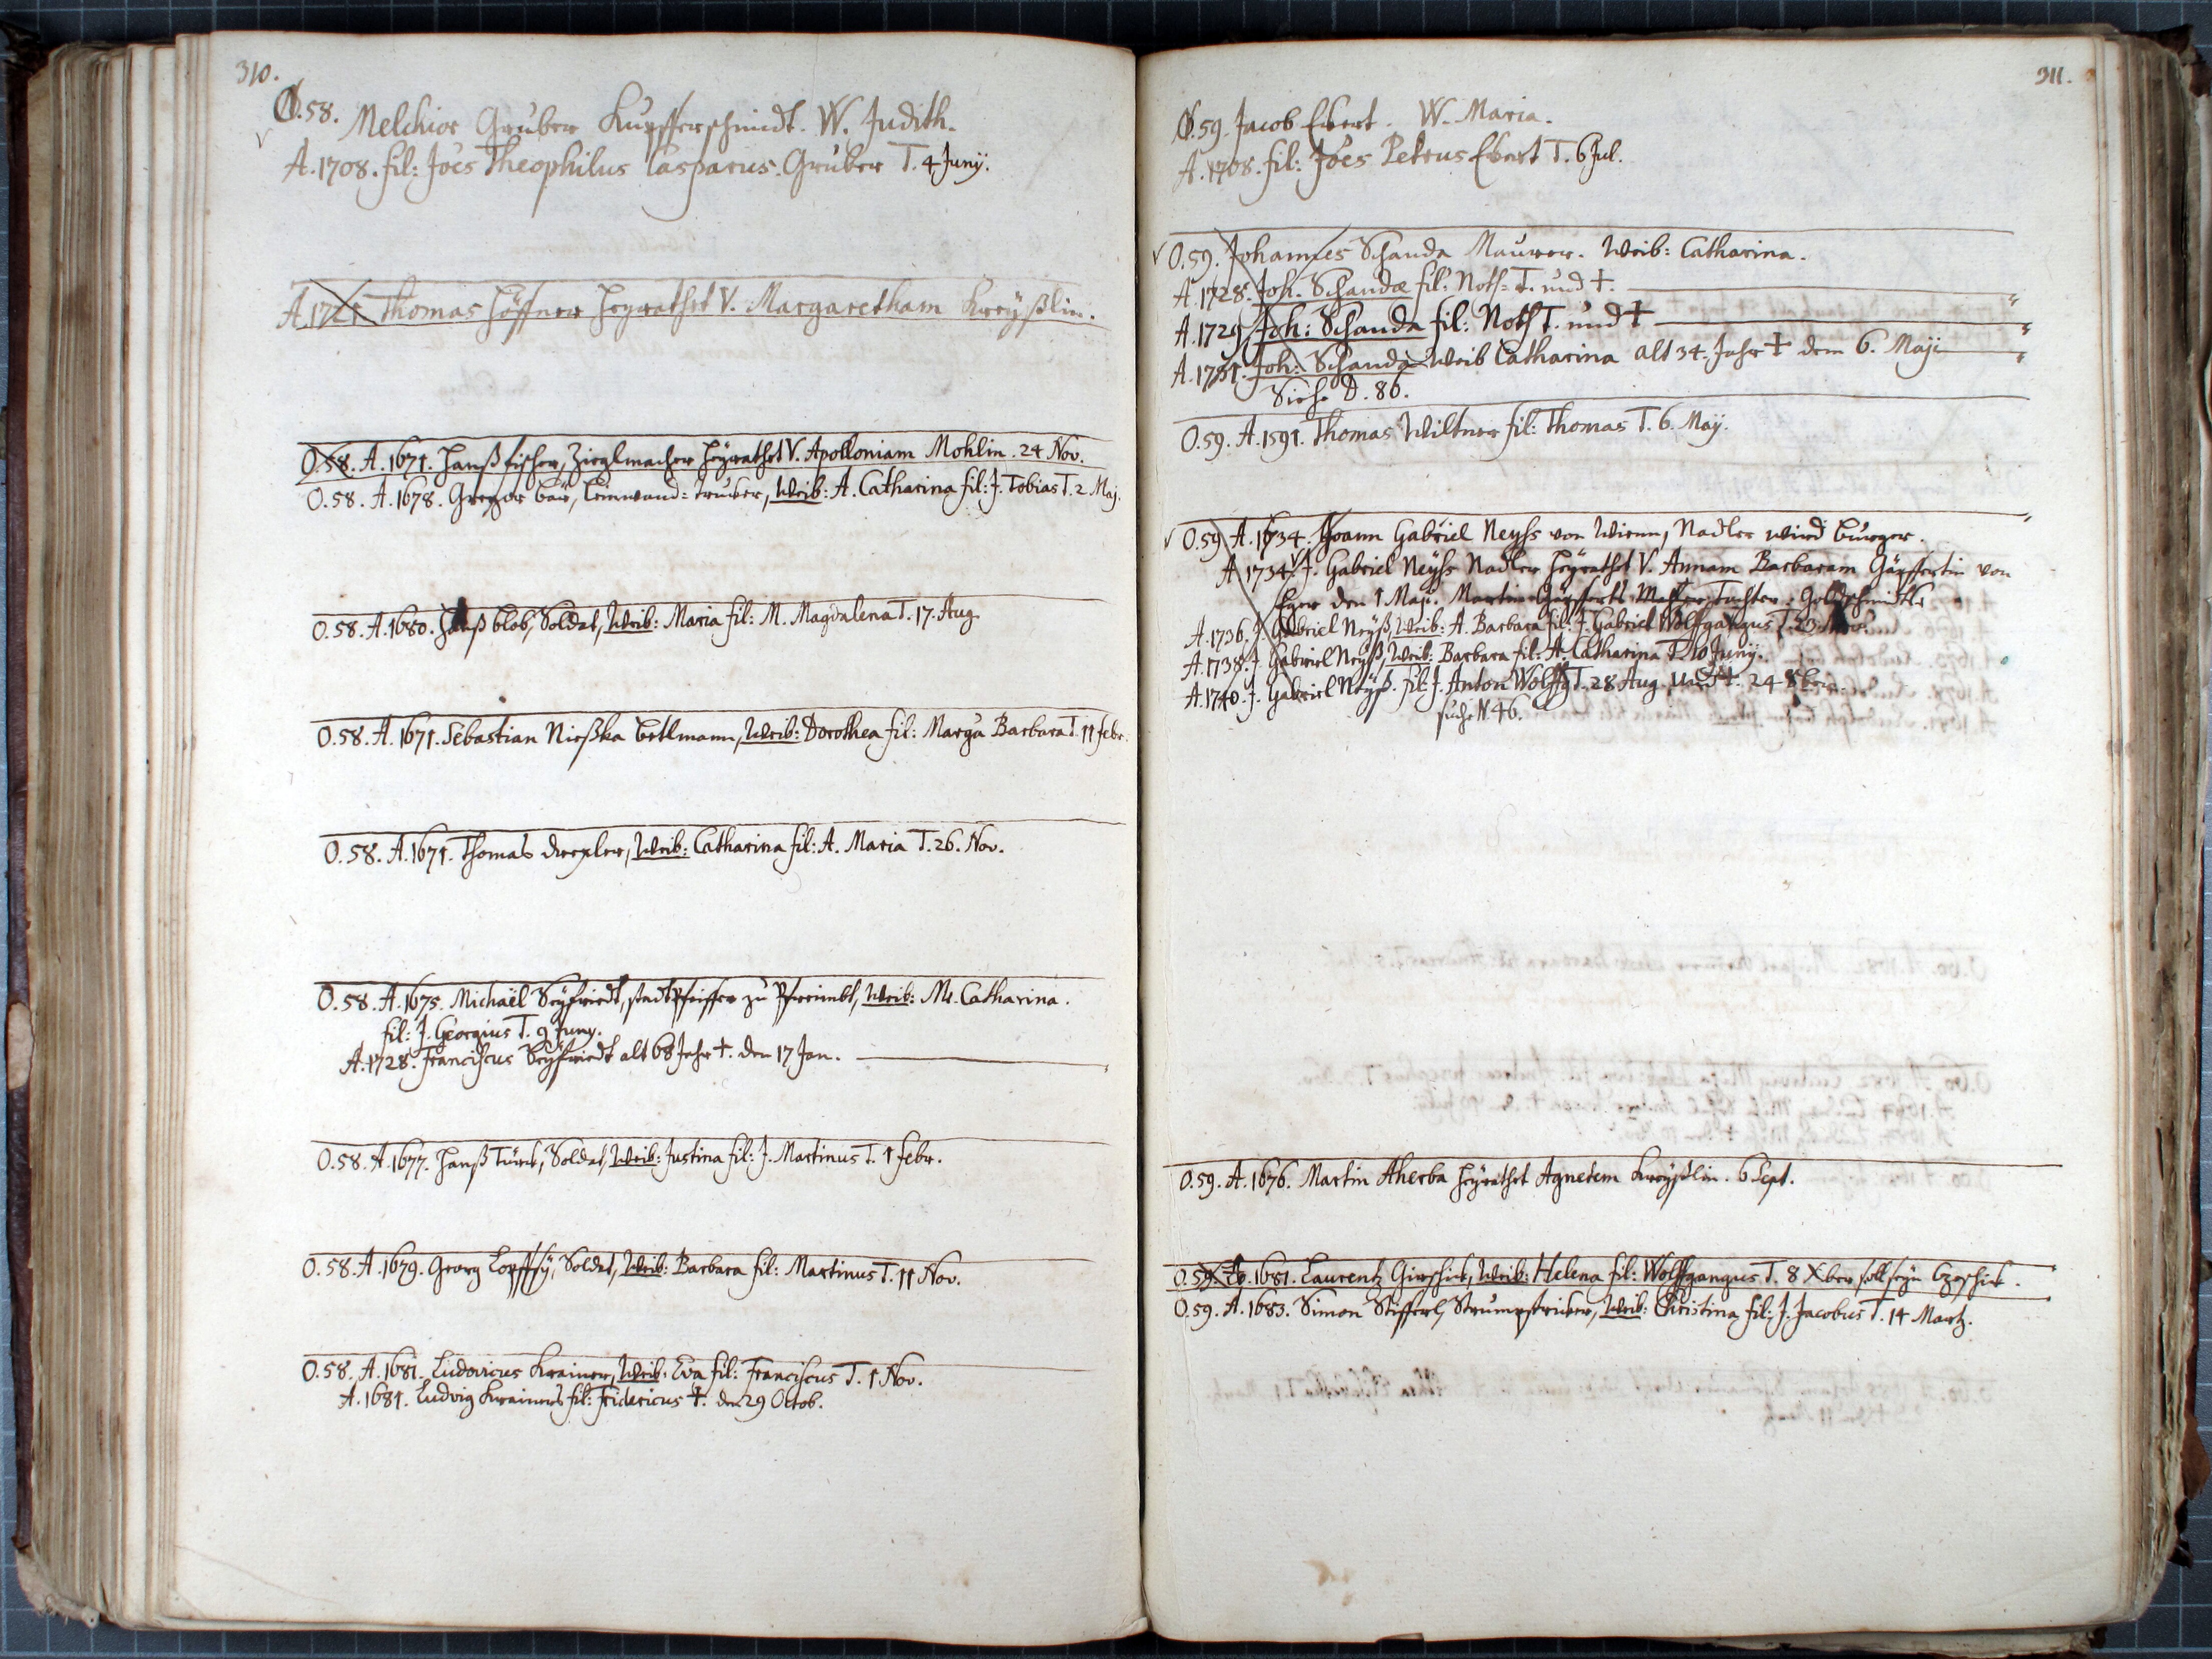 310.
O.58. Melchior Gruber Kupfferschmidt. W. Judith.
A.1708. fil: Jões Theophilus Casparus. Gruber T. 4 Junÿ.
Thomas Höffner heyrathet V. Margaretham Kreyßlin.
O.58. A.1671. Hanß fischer, Zieglmacher heyrathet V. Apolloniam Mohlin. 24 Nov.
O.58. A.1678. Gregor Leimwand=drucker, Weib: A. Catharina fil: J. Tobias T. 2 Maj.
O.58. A.1680. Hanß blob, Soldat, Weib: Maria fil: M. Magdalena T. 17. Aug.
O.58. A.1671. Sebastian Nießka betlmann, Weib: Dorothea fil: Barbara T. 11 febr.
O.58. A.1671. Thomas drexler, Weib: Catharina fil: A. Maria T. 26. Nov.
O.58. A.1675. Michaël Seyfriedt, stadtPfeiffer zu Pfreimbt, Weib: M. Catharina.
fil: J. Georgius T. 9 Juny.
A.1728. Franciscus Seyfriedt alt 68 Jahr †. den 17 Jan.
O.58. A.1677. Hanß Türck, Soldat, Weib: Justina fil: J. Martinus T. 1 febr.
O.58. A.1679. Georg Soldat, Weib: Barbara fil: Martinus T. 11 Nov.
O.58. A.1681. Ludovicus Krainer, Weib: Eva fil: Franciscus T. 1 Nov.
A.1681. Ludvig Krainers fil: Fridericus †. den 29 Octob.
311.
O.59. Jacob Ebert. W. Maria.
A.1708. fil: Jões Petrus Ebert T. 6 Jul.
O.59. Johannes Schanda Maurer. Weib: Catharina.
A.1728. Joh. Schandæ fil: Noth=T. und †.
A.1729. Joh: Schanda fil: Noth T. und †
A.1731. Joh: Schanda Weib Catharina alt 34. Jahr † dem 6. Maji
Siehe D. 86.
O.59. A.1591. Thomas Wiltner fil: Thomas T. 6. Maÿ.
O.59. A.1734. Joann Gabriel Neyß von Wienn, Nadler wird burger.
A.1734. J. Gabriel Neyß Nadler heyrathet V. Annam Barbaram Gäpffertin von
Eger den 1 Maji. Martin Gäpfferts Tochter. Goldschmidts
A.1736. J. Gabriel Neyß, Weib: A. Barbara fil: J. Gabriel Wolffgangus T. 23
A.1738. J. Gabriel Neyß, Weib: Barbara fil: A. Catharina T. 10 Junÿ.
A.1740. J. Gabriel Neyß. fil: J. Anton Wolffg T. 28 Aug. und †. 24 8ber.
suche N. 46.
O.59. A.1676. Martin Aherba heyrathet Agnetem Kreyßlin. 6 Sept.
O.59. A.1681. Laurentz Girschick, Weib: Helena fil: Wolffgangus T. 8 Xber soll seyn
O.59. A.1683. Simon Stifferl, Strumpfstricker, Weib: Christina fil: J. Jacobus T. 14 Martz.